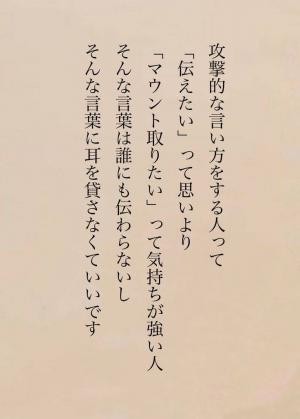 攻撃的な言い方をする人って
「伝えたい」って思いより
「マウント取りたい」って気持ちが強い人
そんな言葉は誰にも伝わらないし
そんな言葉に耳を貸さなくていいです